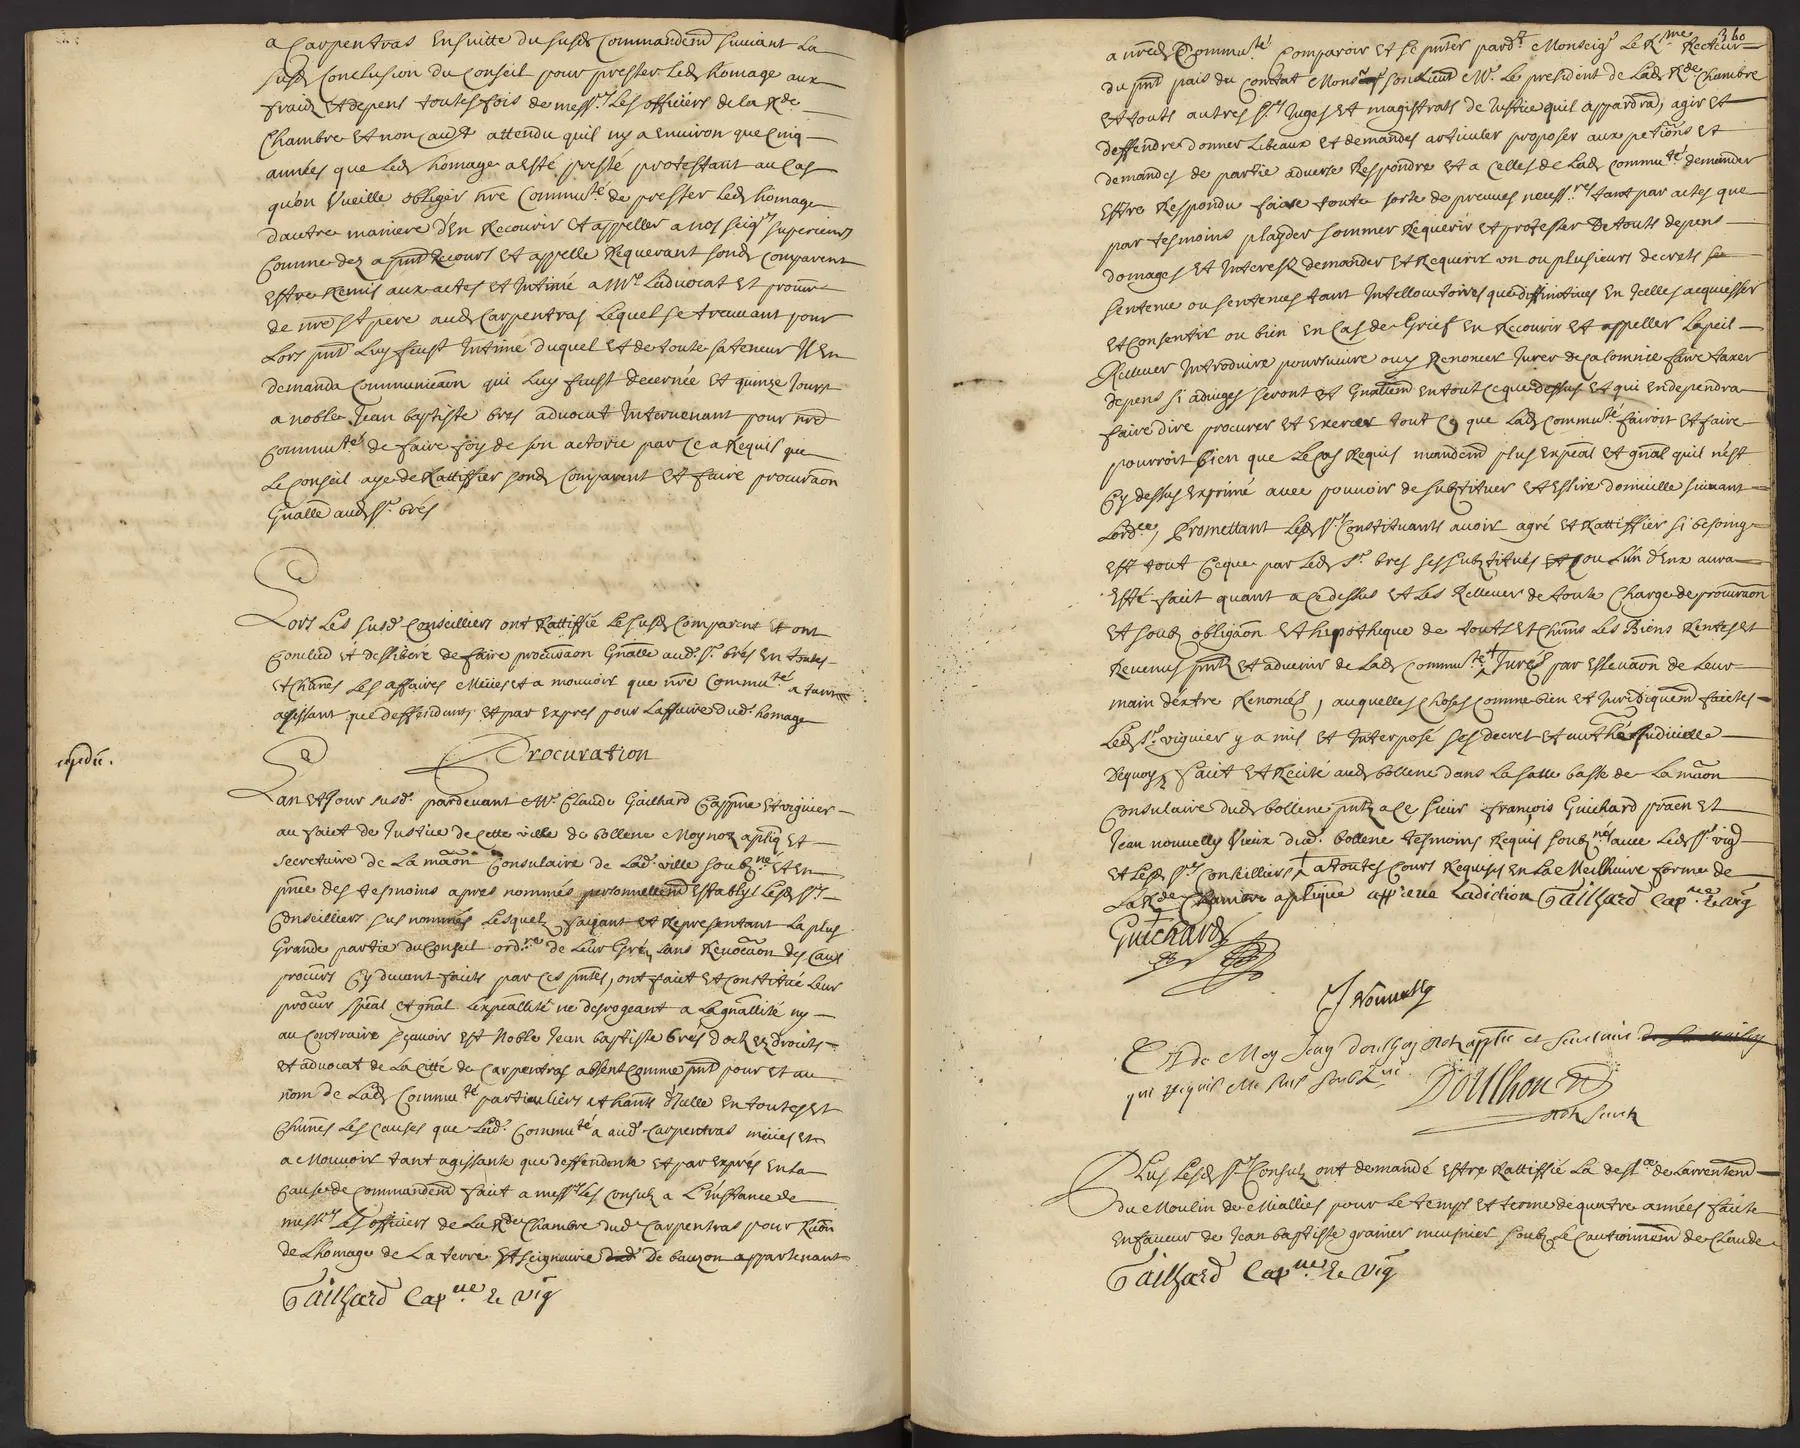 a Carpentras Ensuitte du susd Commandem̃t suivant La
susd Conclusion du Conseil pour prester led homage aux
fraix et depens toutesfois de mess.rs Les officiers de la Rde
Chambre et non aut attendu quil ny a environ que Cinq
années que Led homage a esté presté protestant au Cas
qu'on Vueille obliger nr̃e Commu.té de prester Led homage
d'autre maniere d'En Recourir et appeller a nos seig.rs superieurs
Comme dez a pn̄t Recourt et appelle Requerant sond Comparent
estre Remis aux actes et Intimé a Mr. L'advocat et procur.
de nr̃e St pere aud Carpentras Lequel se treuvant pour
Lors pn̄t Luy feust Intime duquel et de toute sa teneur Il En
demanda Communicãon qui Luy feust decernée et quinze Jours
a noble Jean baptiste bres advocat Intervenant pour nr̃e
Commu.té de faire foy de son actorie par Ce a Requis que
Le Conseil aye de Rattiffier sond Comparent et faire procurãon
Gn̄alle aud Sr. brés
Lors Les susd. Conseilliers ont Rattiffié le susd Comparent et ont
Conclud et dellibéré de faire procurãon Gn̄alle aud. Sr. brés En toutes
et Chūnes Les affaires Meües et a mouvoir que nr̃e Commu.té a tant
agissant que deffendant, et par Expres pour Laffaire dud. homage
expedié.
Procuration
Lan et Jour susd. pardevant Mr. Claude Gailhard Cappne et viguier
au faict de Justice de Cette ville de bollene Moy not. aplīq et
secretaire de La maõn Consulaire de Lad. ville soub.né et En
pn̄ce des tesmoins apres nommés personnellem̃t Establys Lesd Srs
Conseilliers sus nommés Lesquels faisant et Representant La plus
Grande partie du Conseil ord.re de Leur Gré, sans Revocãon des Caus
procurs Cy devant faicts par Ces pn̄tes, ont faict et Constitué Leur
procur spēal et gn̄al Lexpeallité ne desrogeant a La gn̄allité ny
au Contraire sçavoir est Noble Jean baptiste brés doct. Ez droits
et advocat de La Citté de Carpentras absent Comme pn̄t pour et au
nom de Lad Commu.té particuliers et han̄ts dicelle En toutes et
Chūnes Les Causes que Lad. Commu.té a aud. Carpentras meües et
a Mouvoir tant agissante que deffendente et par Exprés En La
Cause de Commandem̃t faict a mess.rs Les Consuls a L'instance de
mess.rs Les officiers de La Rde Chambre dud. Carpentras pour Raõn
de Lhomage de La terre et seigneurie De bauzon appartenant
Gailhard Cap.ne et vig
360
a nr̃ed Commu.té Comparoir et se pn̄ter pard.t Monseigr Le R.me Recteur
du pn̄t pais du Contat Monsr son Lieut Mr. Le president de Lad Rde Chambre
et touts autres Srs Juges et magistrats de Justice quil appardra, agir et
deffendre donner Libeaux et demandes articuler proposer aux petitions et
demandes de partie adverse Respondre et a celles de Lad Commu.té demander
Estre Respondu faire toute sorte de preuves necess.res tant par actes que
par tesmoins playder sommer Requerir et protester De touts depens
domages et Interestz demander et Requerir un ou plusieurs decrets
sentence ou sentences tant Intellocutoires que diffinitives En Icelles acquiesser
et Consentir ou bien En Cas de Grief En Recourir et appeller Lapeil
Relever Introduire poursuivre ou y Renoncer Jurer de Calomnie faire taxer
depens si adiuges seront et Gn̄allem̃t En tout Ce que dessus et qui En dependra
faire dire procurer et Exercer tout Ce que Lad Commu.té fairoit et faire
pourroit bien que Le Cas Requis mandem̃t plus Expeãl et gn̄al quil n'est
Cy dessus Exprimé avec pouvoir de substituer et Eslire domicille suivant
Lord.ce, Promettant Lesd Srs Constituants avoir agré et Rattiffier si besoing
Est tout Ceque par Led Sr. bres ses substitués ou L'un d'Eux aura
Esté faict quant a Cedessus et Les Rellever de toute Charge de procurãon
et soubz obligãon et hipotheque de touts et Chūns Les Biens Rentes et
Revenus pn̄ts et advenir de Lad Commu.té + Jurés par Eslevãon de Leur
main dextre Renoncés, auquelles choses Comme bien et Juridiquem̃t faictes
Led Sr. viguier y a mis et Interposé ses decret et authé Judicielle
De quoy, faict et Recité aud bollene dans La salle basse de La maõn
Consulaire dud bollene pn̄ts a Ce sieur françois Guichard pratn et
Jean nouvelly vieux dud. bollene tesmoins Requis soub.nes avec Led Sr. vig
et Lesd Srs Conseilliers + a toutes Cours Requises En La Meilheure forme de
La Rde Chambre aplīque app.vée Ladiction Gailhard Cap.ne et vig
Guichard
J Nouvelly
Et de Moy Jean Doulhon not. applīc et secretaire
qui Requis me suis soub.né
Doulhon
not. secret.
Plus Lesd Srs Consuls ont demandé Estre Rattiffié La desl.ce de Larrentem̃t
du Moulin de Miallies pour Le temps et terme de quatre années faicte
En faveur de Jean baptiste granier musnier soubz Le Cautionnem̃t de Claude
Gailhard Cap.ne et vig